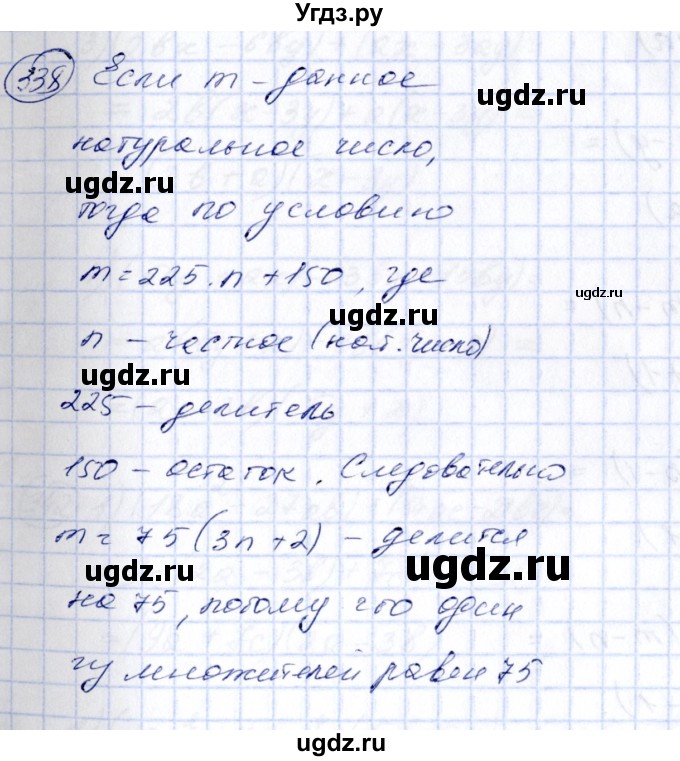 Угдз.ру
338 Если m - данное
натуральное число,
ugdz.ru
ugdz.ru
тогда по условию
m = 225 · n + 150, где
ugdz.ru
n - частное (нат. число)
ugdz.ru
225 - делитель
150 - остаток. Следовательно
m = 75 (3n + 2) - делится
ugdz.ru
ugdz.ru
на 75, потому что один
из множителей равен 75
ugdz.ru